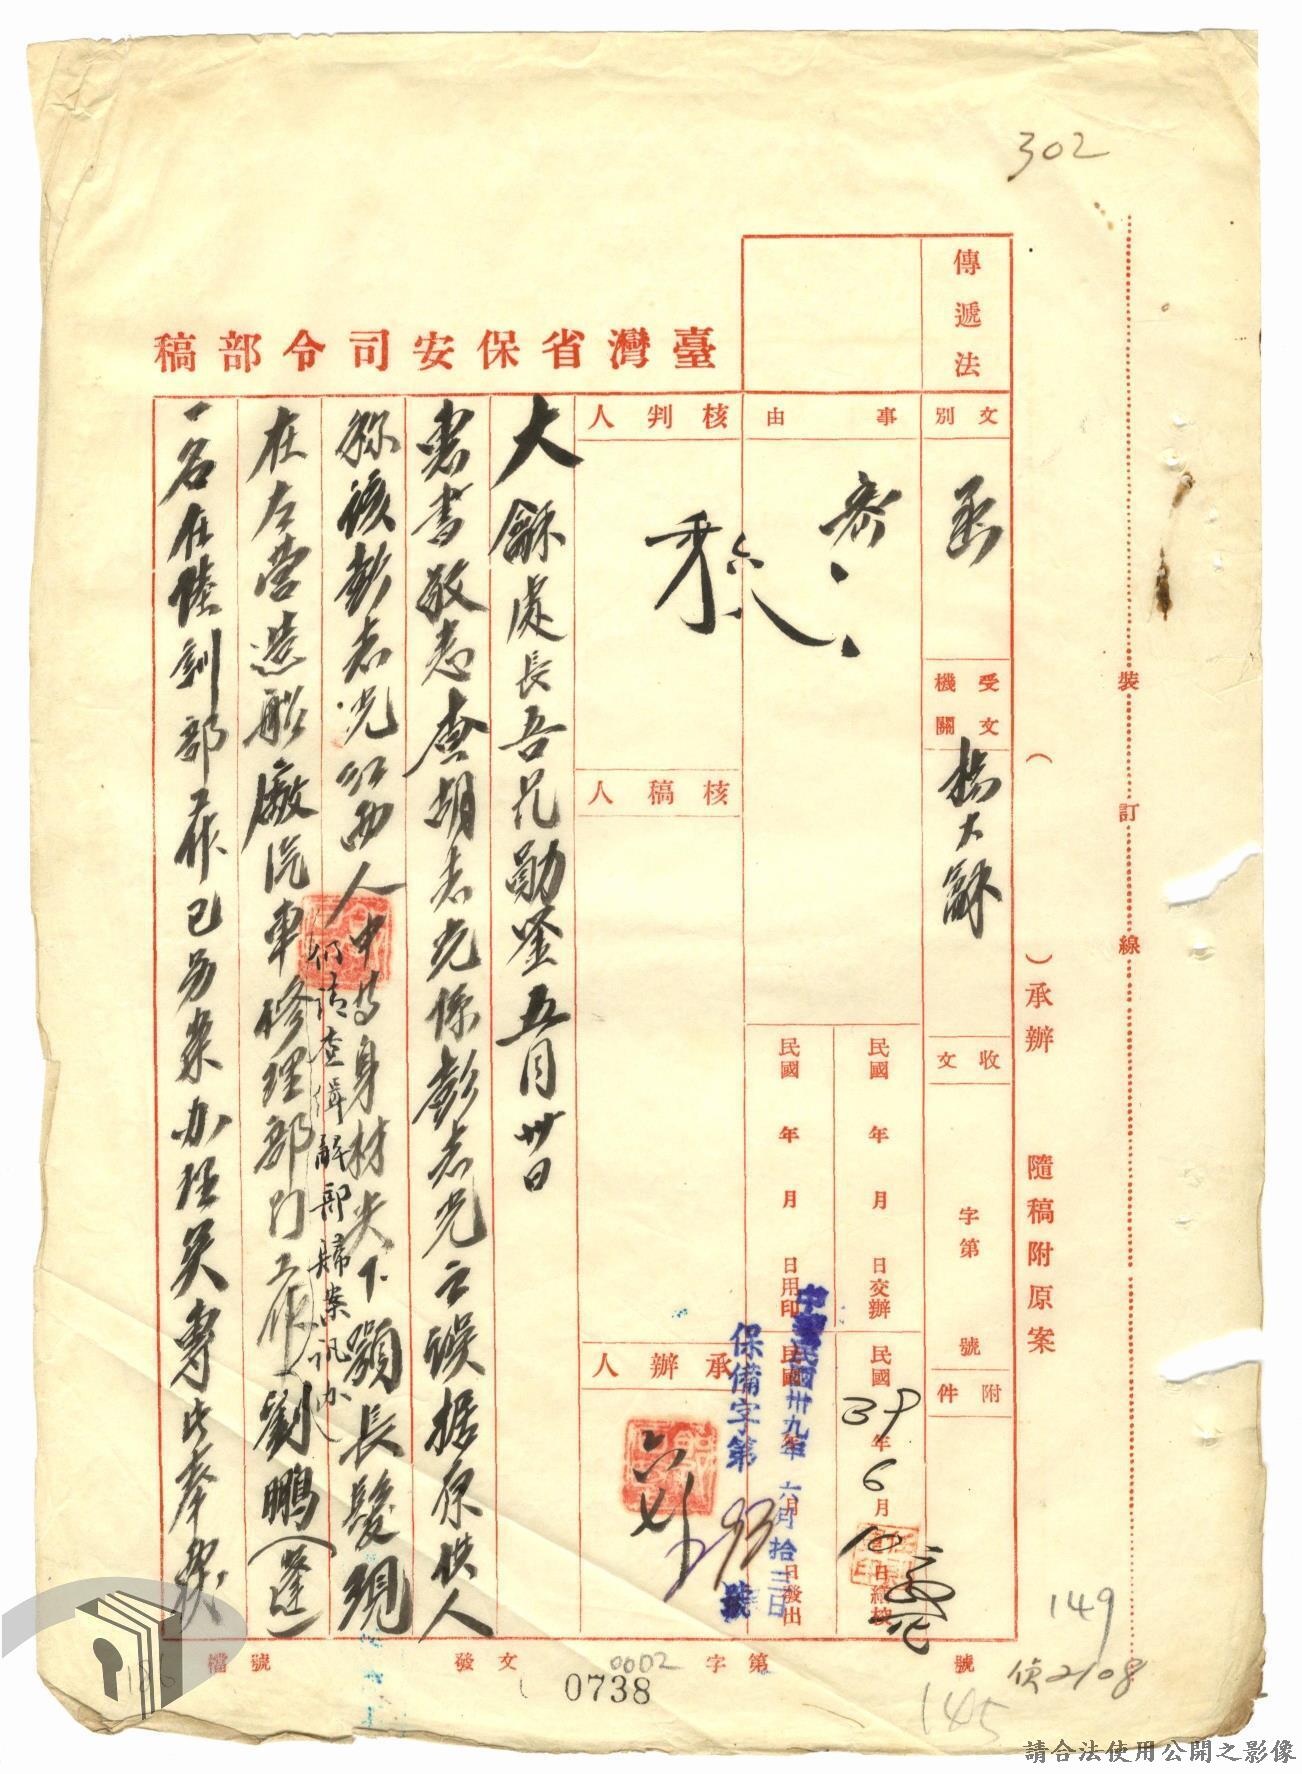 302
傳遞法
臺灣省保安司令部稿
文別
函
事由
核判人
受文機關
楊大龢
核稿人
收文
字第　號
附件
民國　年　月　日交辦
民國　年　月　日用印
民國39年6月10日繕校
民國　年　月　日發出
中華民國卅九年六月拾三日
保備字第　號
承辦人
大龢處長吾兄勛鑒五月卅日
惠書敬悉查胡志光係彭志光之誤據原供人
稱該彭志光江西人中等身材尖下顎長髮現
在左營造船廠汽車修理部門工作
仍請查緝解部歸案訊办
劉鵬(蓬)
一名在陸訓部工作已另案办理矣專此奉復
(　)承辦　隨稿附原案
裝　訂　線
檔號
發文　字第　號
0002
0738
149
偵2108
145
106
請合法使用公開之影像